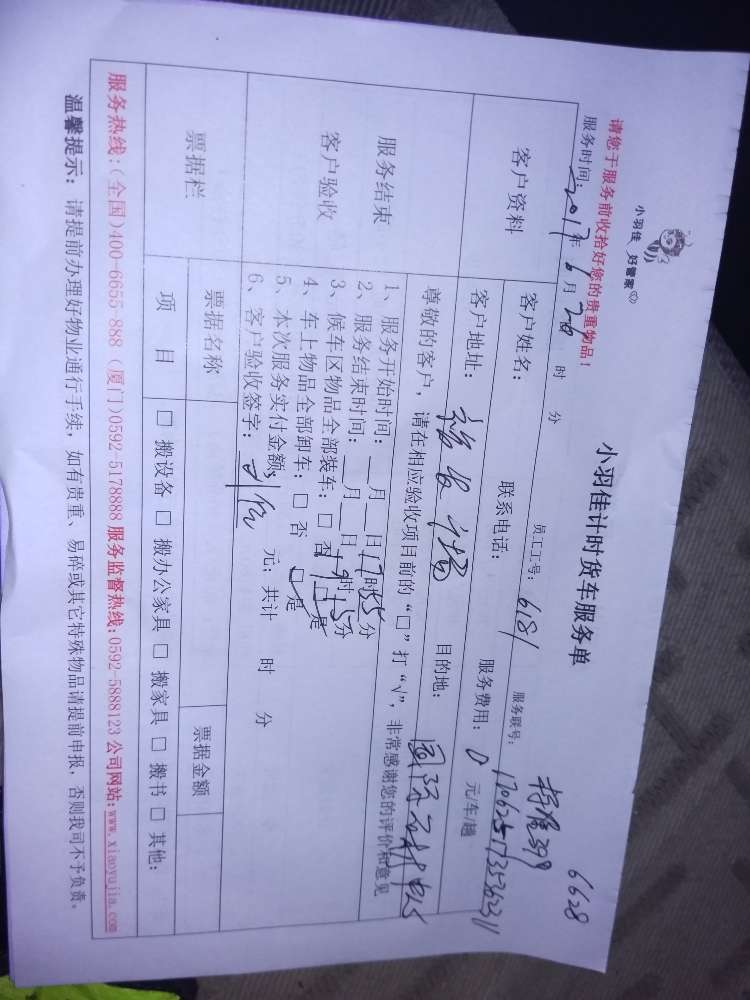 小羽佳 好管家
小羽佳计时货车服务单
6628
请您于服务前收拾好您的贵重物品！
服务时间: 2017年6月26 时 分
员工工号: 6181
服务联号: 1706251735362311
客户资料
客户姓名:
联系电话:
服务费用: 0 元车/趟
客户地址:
目的地:
尊敬的客户，请在相应验收项目前的“□”打“√”，非常感谢您的评价和意见
服务结束
客户验收
1、服务开始时间: __月__日17时55分
2、服务结束时间: __月__日19时15分
3、候车区物品全部装车: □ 否 □ 是
4、车上物品全部卸车: □ 否 □ 是
5、本次服务实付金额: 元; 共计 时 分
6、客户验收签字:
票据栏
票据名称
票据金额
项 目
□ 搬设备 □ 搬办公家具 □ 搬家具 □ 搬书 □ 其他:
服务热线:(全国)400-6655-888 (厦门)0592-5178888 服务监督热线:0592-5888123 公司网站:www.xiaoyujia.com
温馨提示: 请提前办理好物业通行手续，如有贵重、易碎或其它特殊物品请提前申报，否则我司不予负责。